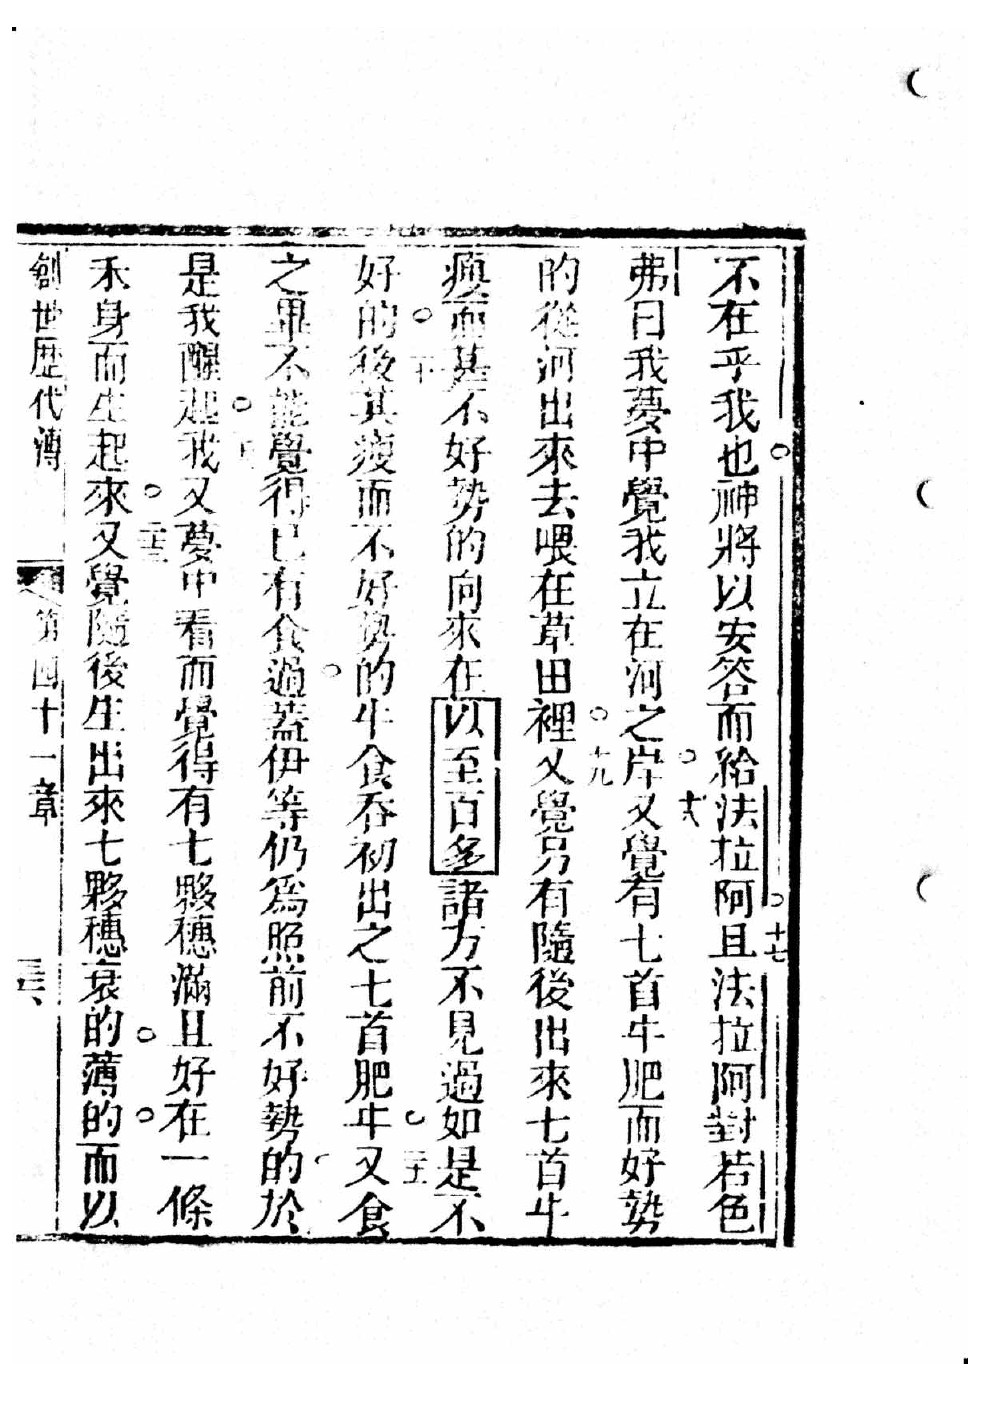 不在乎我也神將以安答而給法拉阿且法拉阿對若色
十七
弗曰我夢中覺我立在河之岸又覺有七首牛肥而好勢
十八
的從河出來去喂在草田裡又覺另有隨後出來七首牛
十九
瘦而甚不好勢的向來在以至百多諸方不見過如是不
二十
好的後其瘦而不好勢的牛食吞初出之七首肥牛又食
二十一
之畢不能覺得已有食過蓋伊等仍為照前不好勢的於
是我醒起我又夢中看而覺得有七夥穗滿且好在一條
二十三
禾身而生起來又覺隨後生出來七夥穗衰的薄的而以
創世歷代傳 第四十一章